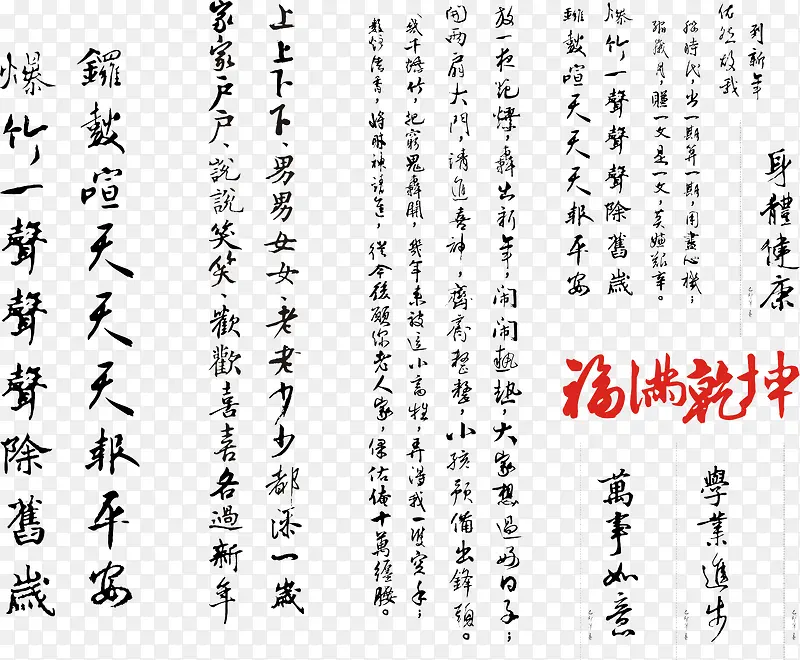 到新年
依然故我
時代，出一期算一期，用盡心機；
歲月，賺一文是一文，莫嫌艱辛。
爆竹，一聲聲聲除舊歲
鑼鼓喧天天天報平安
身體健康
福滿乾坤
學業進步
萬事如意
放一夜炮燎，轟出新年，鬧鬧熱熱，大家想過好日子；
開兩扇大門，請進喜神，齊齊整整，小孩預備出鋒頭。
幾千爆竹，把窮鬼轟開，幾年來被這小畜牲，弄得我一雙空手；
數炷清香，將財神請進，從今後願你老人家，保佑俺十萬纏腰。
上上下下、男男女女、老老少少都添一歲
家家戶戶、說說笑笑、歡歡喜喜各過新年
鑼鼓喧天天天報平安
爆竹，一聲聲聲除舊歲